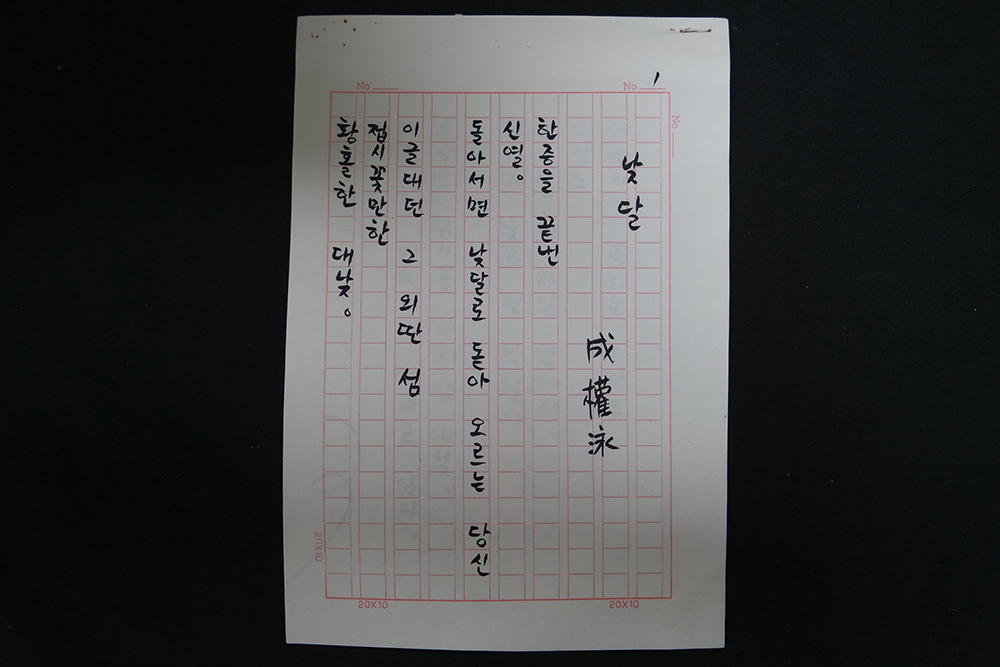 No 1
No
No
낮달
成權泳
한중을 끝낸
신열。
돌아서면 낮달로 돋아 오르는 당신
이글대던 그 외딴 섬
접시꽃만한
황홀한 대낮。
20X10
20X10
20X10